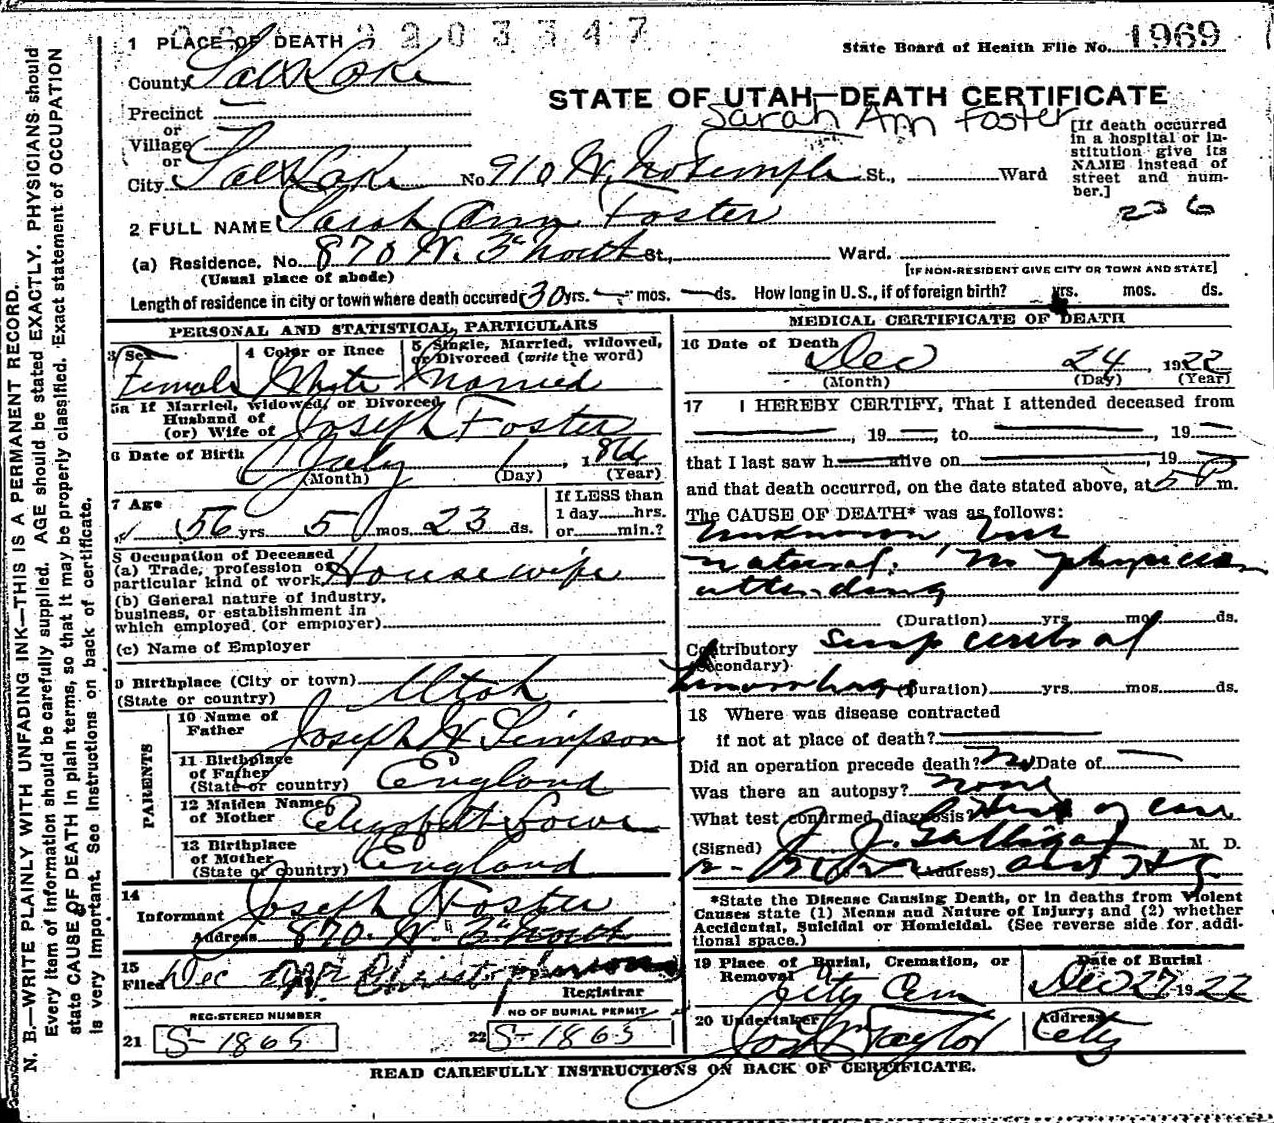 2203347
1 PLACE OF DEATH
State Board of Health File No. 1969
County Salt Lake
STATE OF UTAH—DEATH CERTIFICATE
Precinct
Sarah Ann Foster
or
Village
or
City Salt Lake No 910 W. No Temple St., Ward
[If death occurred in a hospital or institution give its NAME instead of street and number.]
236
2 FULL NAME Sarah Ann Foster
(a) Residence. No. 870 W. 3rd North St., Ward.
(Usual place of abode)
[IF NON-RESIDENT GIVE CITY OR TOWN AND STATE]
Length of residence in city or town where death occured 30 yrs. — mos. — ds. How long in U.S., if of foreign birth? yrs. mos. ds.
PERSONAL AND STATISTICAL PARTICULARS
3 Sex Female
4 Color or Race White
5 Single, Married, widowed, or Divorced (write the word) Married
5a If Married, widowed, or Divorced
Husband of
(or) Wife of Joseph Foster
6 Date of Birth July 1, 1866
(Month) (Day) (Year)
7 Age 56 yrs 5 mos. 23 ds.
If LESS than
1 day hrs.
or min.?
8 Occupation of Deceased
(a) Trade, profession or
particular kind of work Housewife
(b) General nature of industry,
business, or establishment in
which employed (or employer)
(c) Name of Employer
9 Birthplace (City or town)
(State or country) Utah
PARENTS
10 Name of
Father Joseph W Simpson
11 Birthplace
of Father
(State or country) England
12 Maiden Name
of Mother Elizabeth
13 Birthplace
of Mother
(State or country) England
14
Informant Joseph Foster
Address 870 W 3rd North
15
Filed Dec
Registrar
REGISTERED NUMBER
21 S-1865
NO OF BURIAL PERMIT
22 S-1865
MEDICAL CERTIFICATE OF DEATH
16 Date of Death Dec 24, 1922
(Month) (Day) (Year)
17 I HEREBY CERTIFY, That I attended deceased from
, 19 , to , 19
that I last saw h alive on , 19
and that death occurred, on the date stated above, at 5 P m.
The CAUSE OF DEATH* was as follows:
Unknown, but
natural. No physician
attending
(Duration) yrs. mos. ds.
Contributory sup cerebral
(Secondary)
hemorrhage (Duration) yrs. mos. ds.
18 Where was disease contracted
if not at place of death?
Did an operation precede death? No Date of —
Was there an autopsy? none
What test confirmed diagnosis? Hist of case
(Signed) J. J. Galligan M. D.
(Address)
*State the Disease Causing Death, or in deaths from Violent
Causes state (1) Means and Nature of Injury; and (2) whether
Accidental, Suicidal or Homicidal. (See reverse side for additional space.)
19 Place of Burial, Cremation, or Removal City Cem
Date of Burial Dec 27 1922
20 Undertaker Jos Wm Taylor
Address City
READ CAREFULLY INSTRUCTIONS ON BACK OF CERTIFICATE.
N. B.—WRITE PLAINLY WITH UNFADING INK—THIS IS A PERMANENT RECORD.
Every item of information should be carefully supplied. AGE should be stated EXACTLY. PHYSICIANS should
state CAUSE OF DEATH in plain terms, so that it may be properly classified. Exact statement of OCCUPATION
is very important. See Instructions on back of certificate.